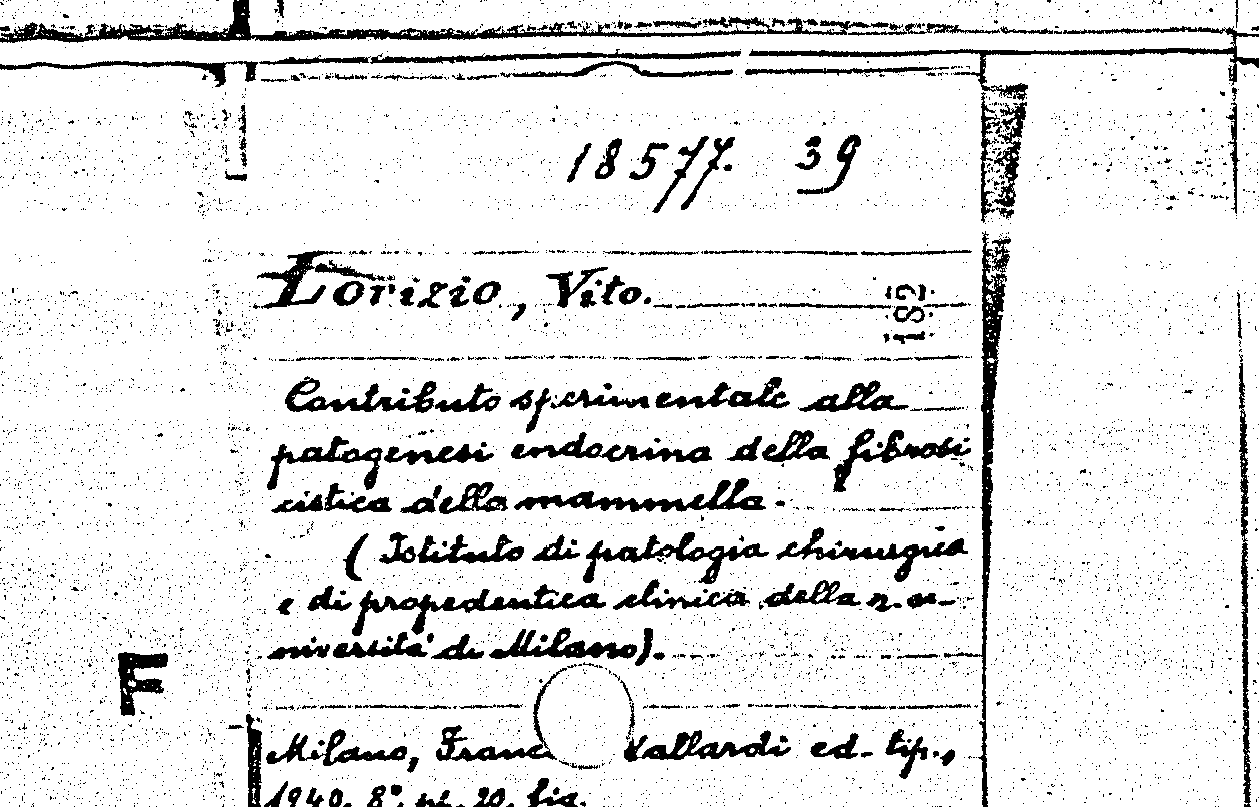 18577. 39
Lorizio, Vito.
182
Contributo sperimentale alla
patogenesi endocrina della fibrosi
cistica della mammella.
( Istituto di patologia chirurgica
e di propedeutica clinica della r. u-
niversità di Milano).
F
Milano, Franc Vallardi ed. tip.,
1940. 8°, pp. 20. fig.